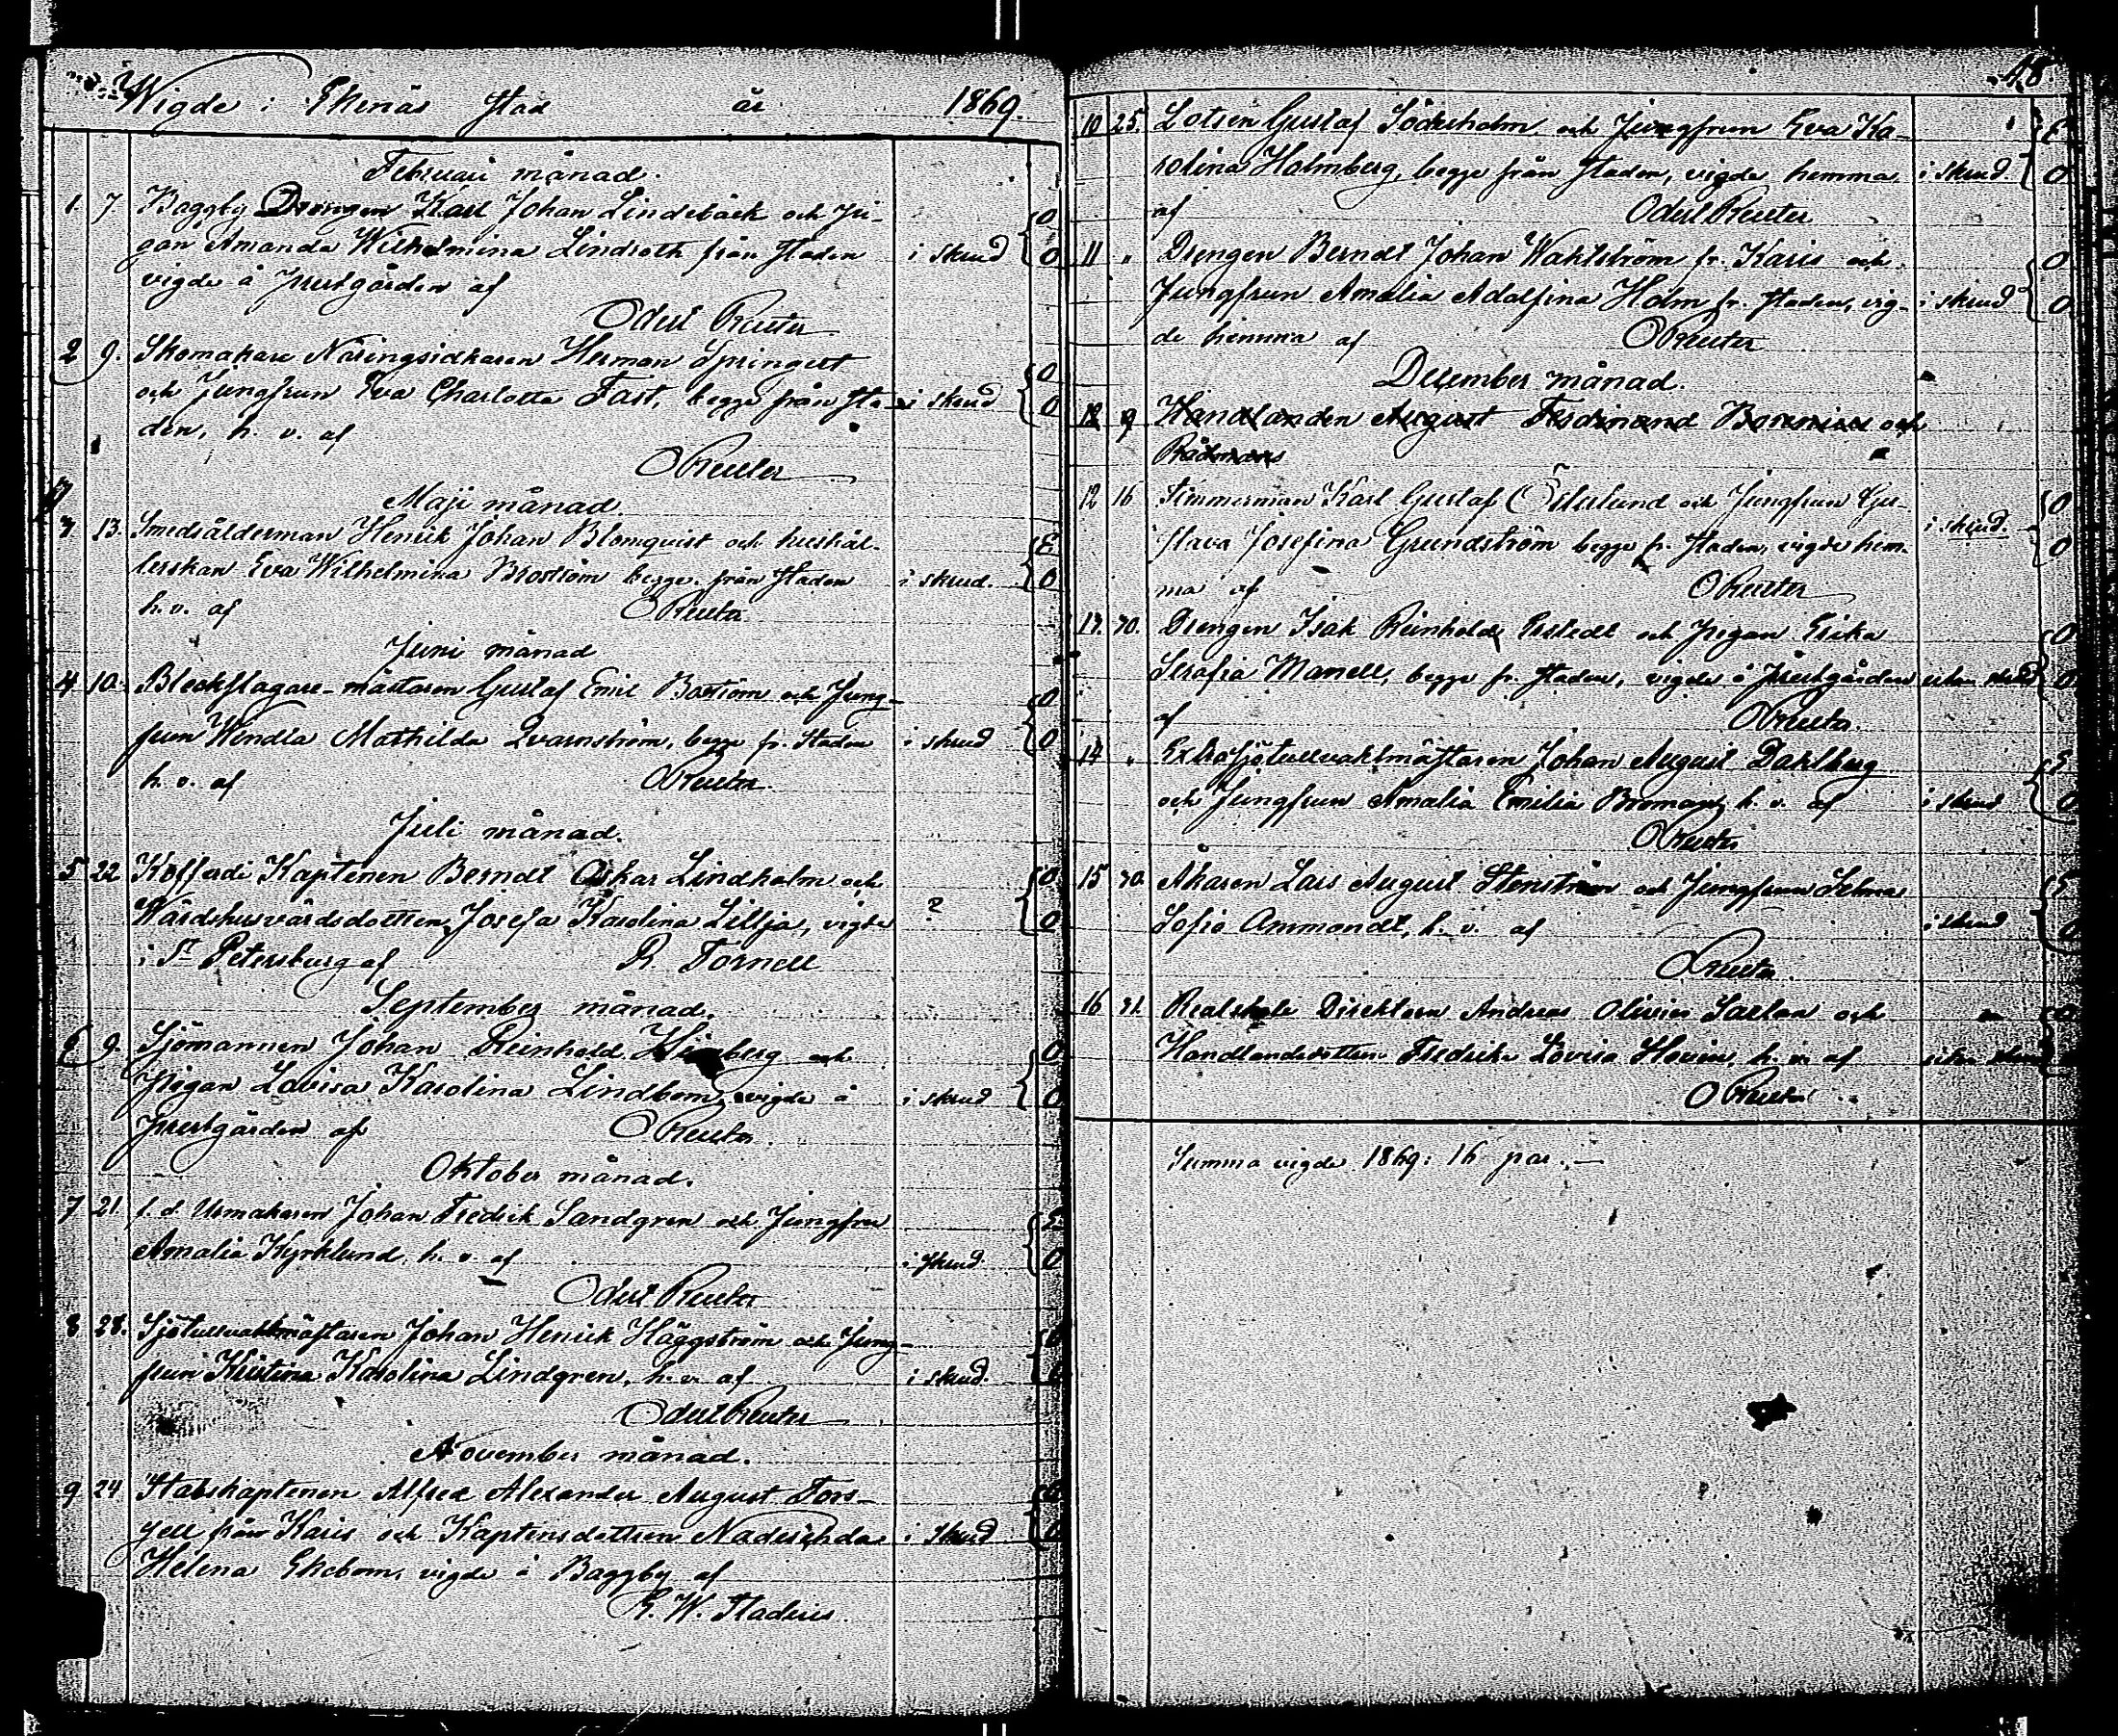 Wigde i Ekenäs stad år 1869.
Februari månad.
1. 7. Baggby Drengen Karl Johan Lindebäck och Pi- O
gan Amanda Wilhelmina Lindroth från staden i skrud O
vigde å prestgården af
Odert Reuter
2 9. Skomakare Näringsidkaren Herman Springert O
och Jungfrun Eva Charlotta Fast, begge från sta- i skrud O
den, h. v. af
OReuter
Maji månad.
3. 13. Smedsålderman Henrik Johan Blomqvist och hushål- E
lerskan Eva Wilhelmina Broström begge från staden i skrud. O
h. v. af OReuter
Juni månad
4 10. Bleckslagare-mästaren Gustaf Emil Boström och Jung- O
frun Wendla Mathilda Qvarnström, begge fr. staden i skrud O
h. v. af OReuter.
Juli månad.
5 22 Kofferdi Kaptenen Berndt Oskar Lindholm och O
Wärdshusvärdsdottren Josefa Karolina Lillja, vigde ? O
i St Petersburg af R. Tornell
September månad.
6 9. Sjömannen Johan Reinhold och O
Pigan Lovisa Karolina Lindbom, vigde å i skrud O
prestgården af OReuter.
Oktober månad.
7 21 f. d. Urmakaren Johan Fredrik Sandgren och Jungfru E
Amalia Kyrklund, h. v. af i skrud. O
Odert Reuter
8 28. Sjötullvaktmästaren Johan Henrik Häggström och Jung- O
frun Kristina Karolina Lindgren, h. v. af i skrud. O
Odert Reuter
November månad.
9 24 Stabskaptenen Alfred Alexander August Tors- O
gell från Karis och Kaptensdottren Nadeschda i skrud O
Helena Ekebom, vigde å Baggby af
G. W. Stadius
48.
10 25. Lotsen Gustaf Söderholm och Jungfrun Eva Ka- E
rolina Holmberg, begge från staden, vigde hemma i skrud. O
af Odert Reuter
11 " Drengen Berndt Johan Wahlström fr. Karis och O
Jungfrun Amalia Adolfina Holm fr. staden, vig- i skrud O
de hemma af OReuter
December månad.
12 9 Handlanden August Ferdinand Boremius och
Rådmans
12 16 Timmerman Karl Gustaf Österlund och Jungfrun Gu- O
stava Josefina Grundström begge fr. staden, vigde hem- i skrud. O
ma af OReuter
13. 30. Drengen Isak Reinhold Erstedt och Pigan Erika O
Serafia Manell, begge fr. staden, vigde å Prestgården utan skrud O
af OReuter.
14 " Extra Sjötullvaktmästaren Johan August Dahlberg E
och Jungfrun Amalia Emilia Broman, h. v. af i skrud O
OReuter
15 30. Åkaren Lars August Stenström och Jungfrun Selma E
Sofia Ammondt, h. v. af i skrud O
OReuter.
16 31. Realskole Direktorn Andreas Olivier Saelan och O
Handlandsdottren Fredrika Lovisa Hovin, h. v. af utan skrud
OReuter
Summa vigde 1869: 16 par.